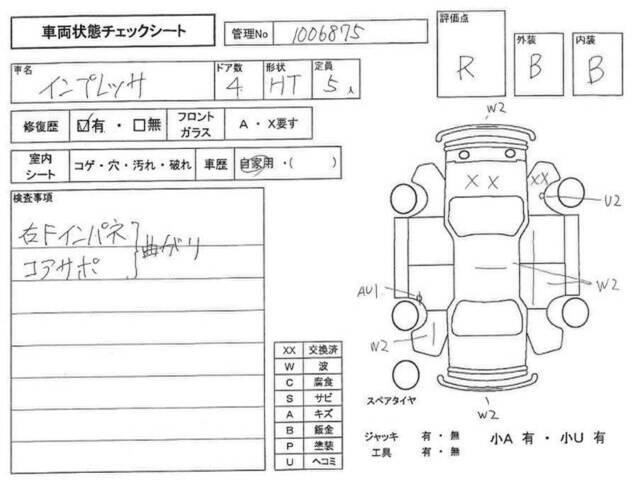 車両状態チェックシート
管理No 1006875
評価点 R
外装 B
内装 B
車名 インプレッサ
ドア数 4
形状 HT
定員 5人
修復歴 ☑有・□無
フロントガラス A・X要す
室内シート コゲ・穴・汚れ・破れ
車歴 自家用・( )
検査事項
右Fインパネ
コアサポ
曲がり
W2
XX
XX
U2
W2
AU1
W2
W2
XX 交換済
W 波
C 腐食
S サビ
A キズ
B 鈑金
P 塗装
U ヘコミ
スペアタイヤ
ジャッキ 有・無
工具 有・無
小A 有・小U 有